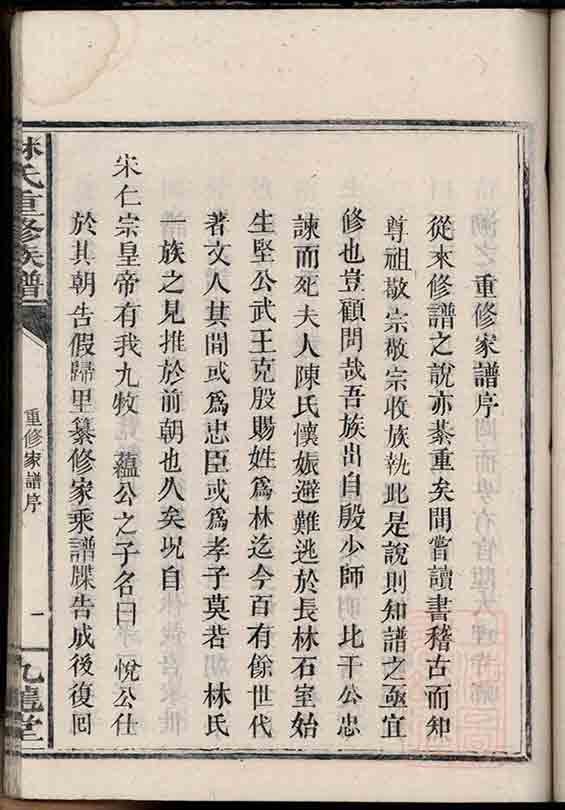 重修家譜序
從來修譜之說亦綦重矣間嘗讀書稽古而知
尊祖敬宗敬宗收族執此是說則知譜之亟宜
修也豈顧問哉吾族出自殷少師 比干公忠
諫而死夫人陳氏懷娠避難逃於長林石室始
生堅公武王克殷賜姓為林迄今百有餘世代
著文人其間或為忠臣或為孝子莫若 林氏
一族之見推於前朝也久矣况自
宋仁宗皇帝有我九牧 蘊公之子名曰 悅公仕
於其朝告假歸里纂修家乘譜牒告成後復回
林氏重修族譜
重修家譜序
一
九龍堂